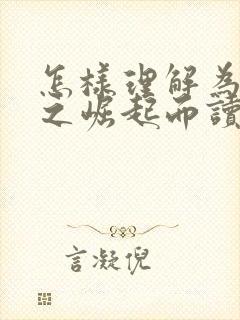 怎樣理解為
之崛起而讀
言凝倪